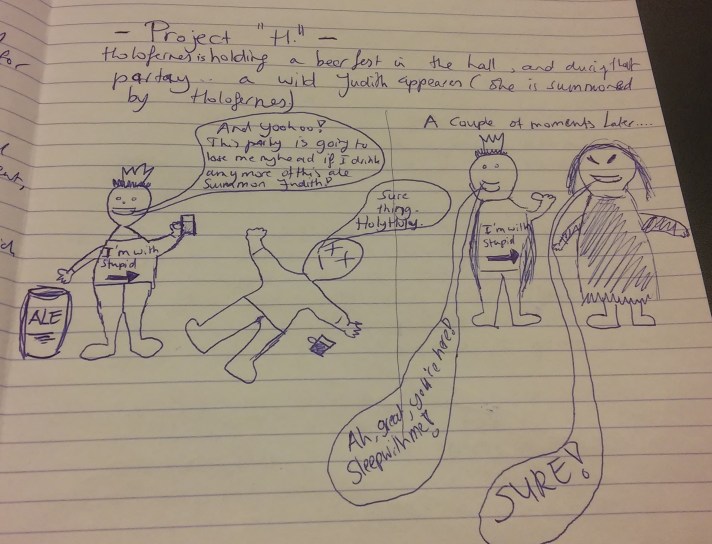 - Project "H." -
Holofernes is holding a beerfest in the hall, and during that
partay.. a wild Judith appeares (she is summoned
by Holofernes)
And yoohoo!
This party is going to
lose me myhead if I drink
any more of this ale
Summon Judith!
Sure
thing.
HolyHoly.
I'm with
Stupid
ALE
A couple of moments later....
I'm with
Stupid
Ah, great, you're here!
Sleep with me!
SURE!